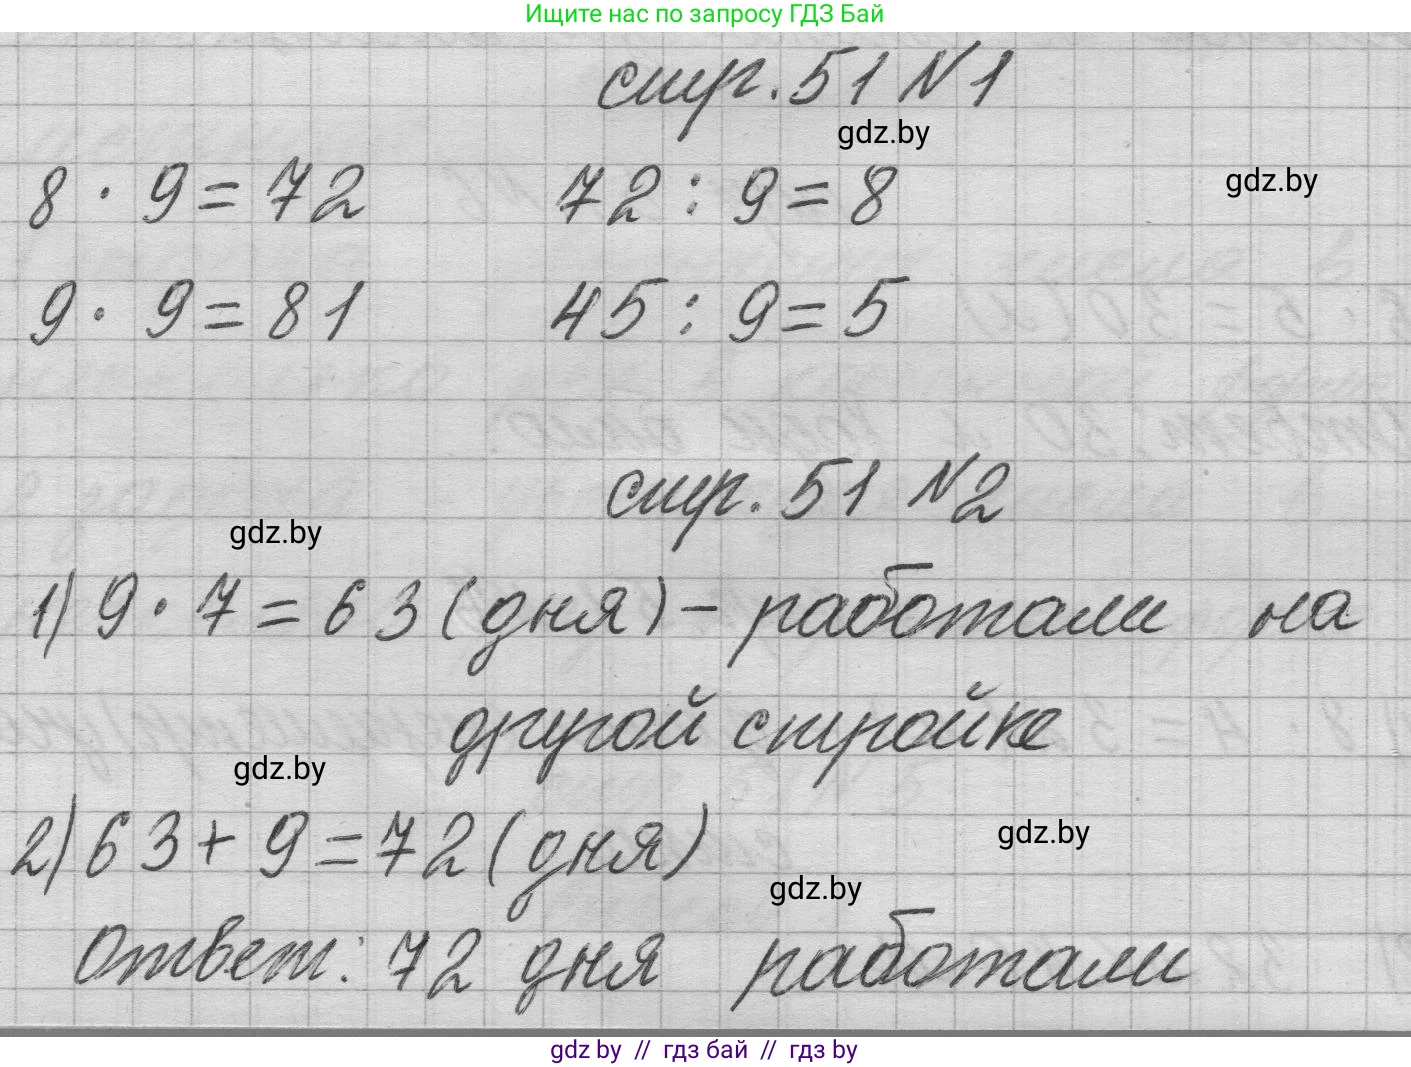 Ищите нас по запросу ГДЗ Бай
стр. 51 №1
gdz.by
8 · 9 = 72 72 : 9 = 8
gdz.by
9 · 9 = 81 45 : 9 = 5
стр. 51 №2
gdz.by
1) 9 · 7 = 63 (дня) – работали на
другой стройке
gdz.by
2) 63 + 9 = 72 (дня)
gdz.by
gdz.by
Ответ: 72 дня работали
gdz by // гдз бай // гдз by